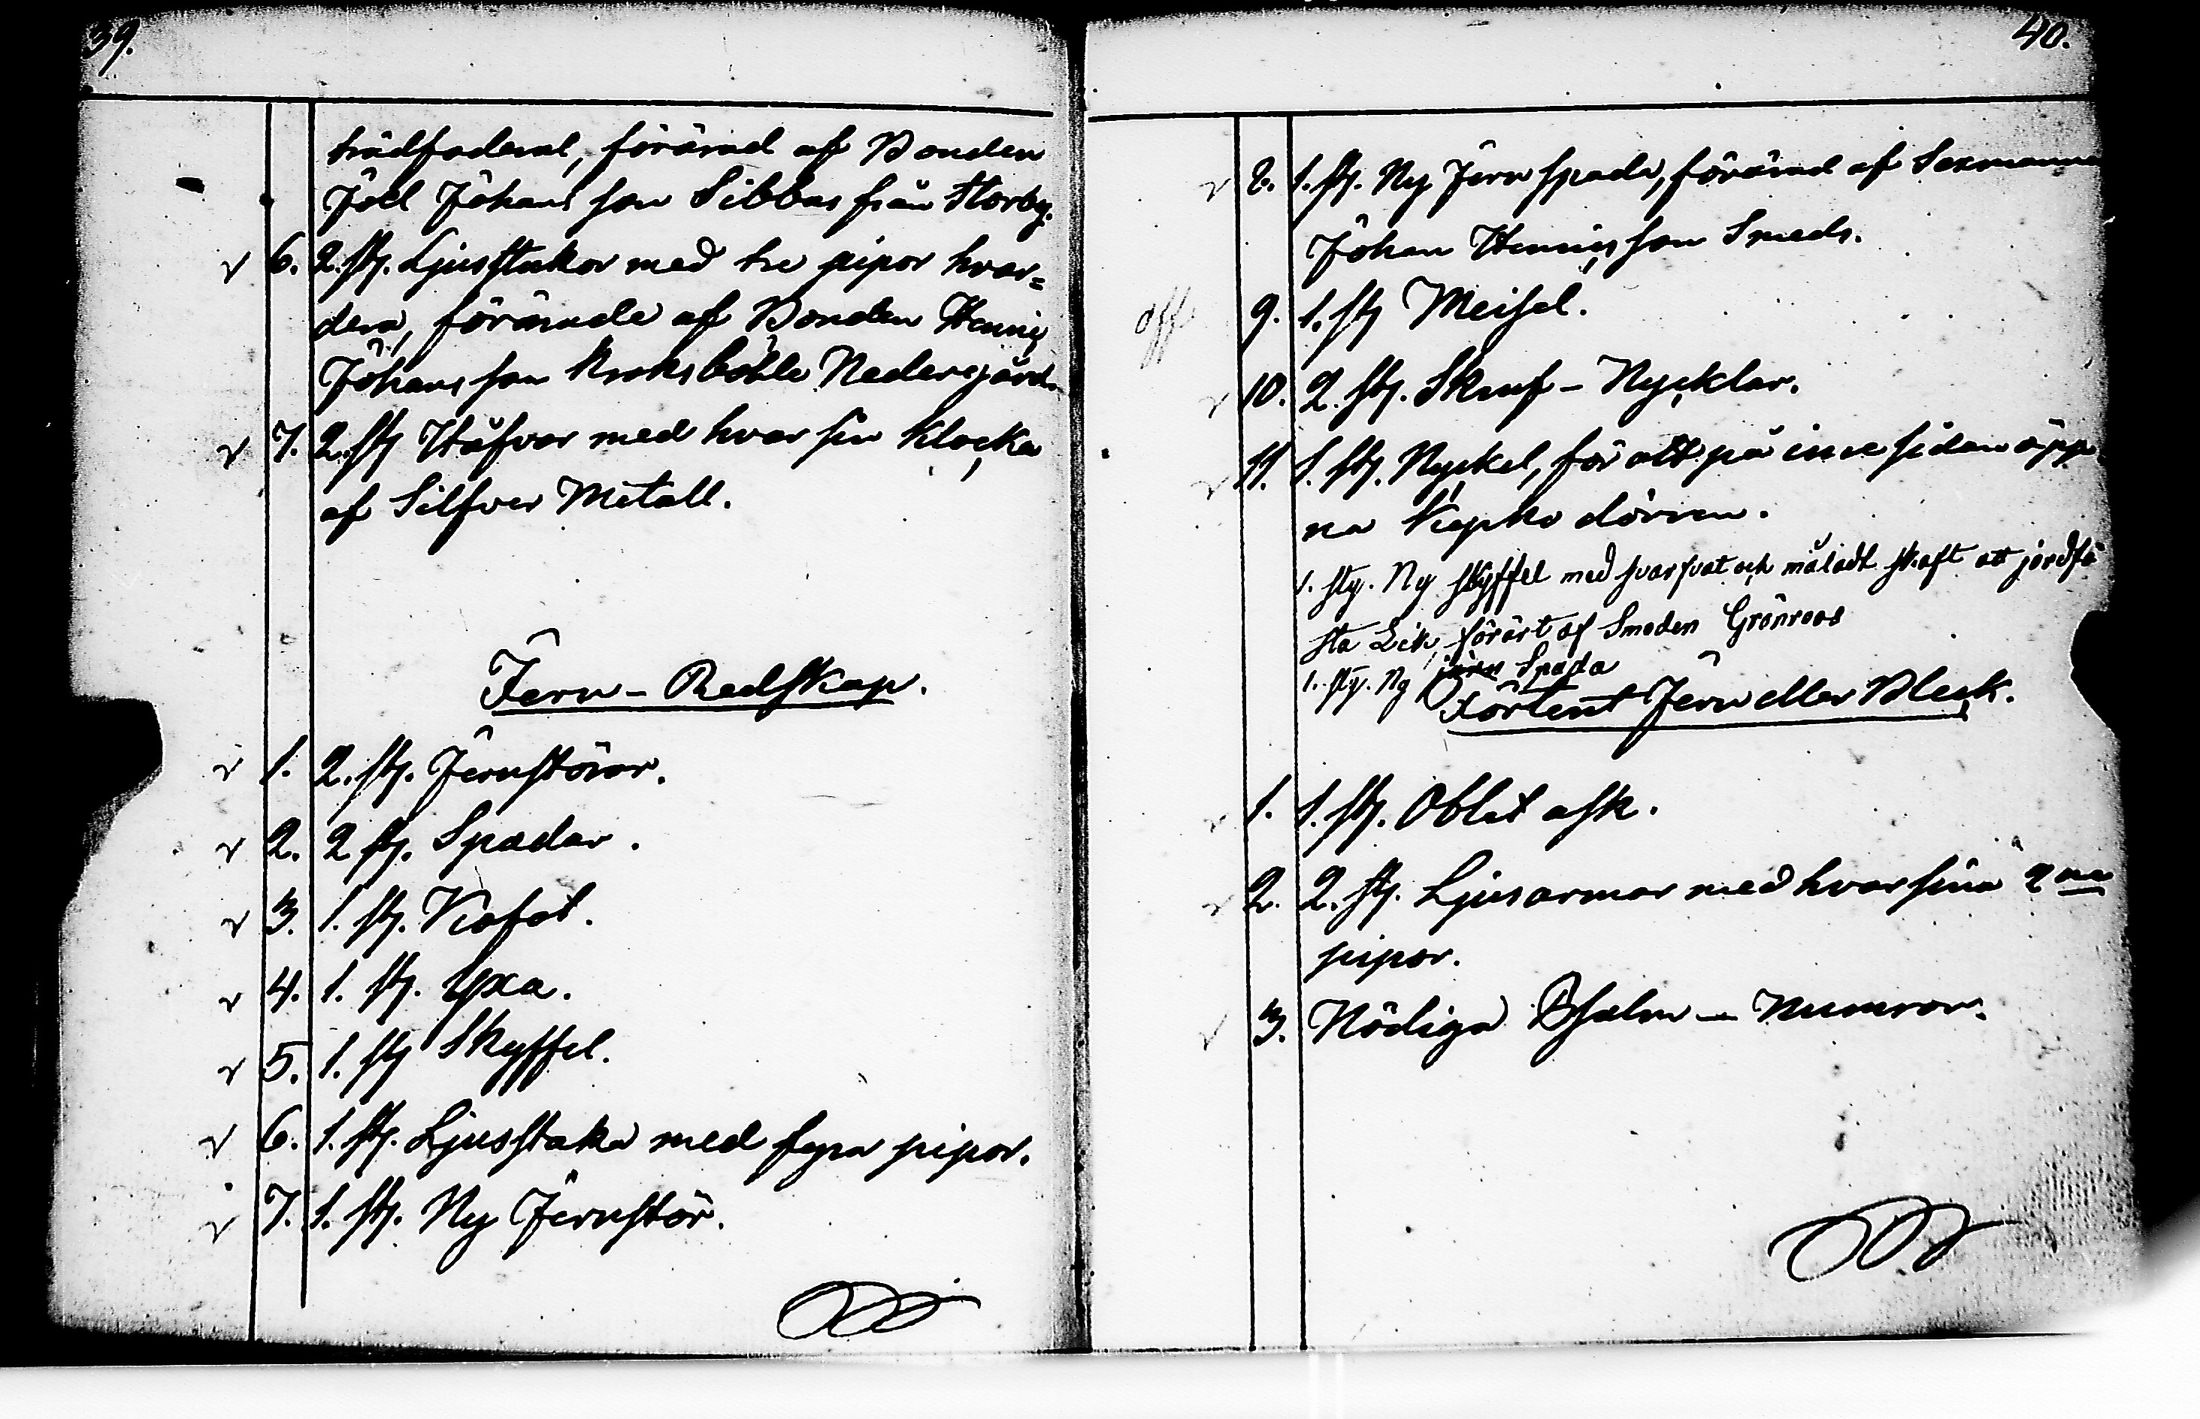 39.
trädfoderal, förärad af Bonden
Joel Johansson Sibbas från Storby.
6. 2. st. Ljusstakor med tre pipor hvar=
dera, förärade af Bonden Hennig
Johansson Kroksböhle Nedergård.
7. 2. st Håfvar med hvar sin Klocka
af Silfver Metall.
Jern-Redskap.
1. 2. st. Jernstörar.
2. 2 st. Spadar.
3. 1. st. Kofot.
4. 1. st. Yxa.
5. 1. st Skyffel.
6. 1. st. Ljusstaka med fyra pipor.
7. 1. st. Ny Jernstör.
40.
8. 1. st. Ny Jern spada, förärad af Sexmannen
Johan Hennigsson Smeds.
off. 9. 1. st Meisel.
10. 2. st. Skruf-Nycklar.
11. 1. st. Nyckel, för att på inre sidan öpp
na Kyrko dörren.
1. sty. Ny skyffel med svarfvat och måladt skaft att jordfä
sta Lik, förärt af Smeden Grönroos
1. sty. Ny jern Spada
Förtent Jern eller Bleck.
1. 1. st. Oblat ask.
2. 2. st. Ljusarmar med hvar sina 2 ne
pipor.
3. Nödiga Psalm-Numror.